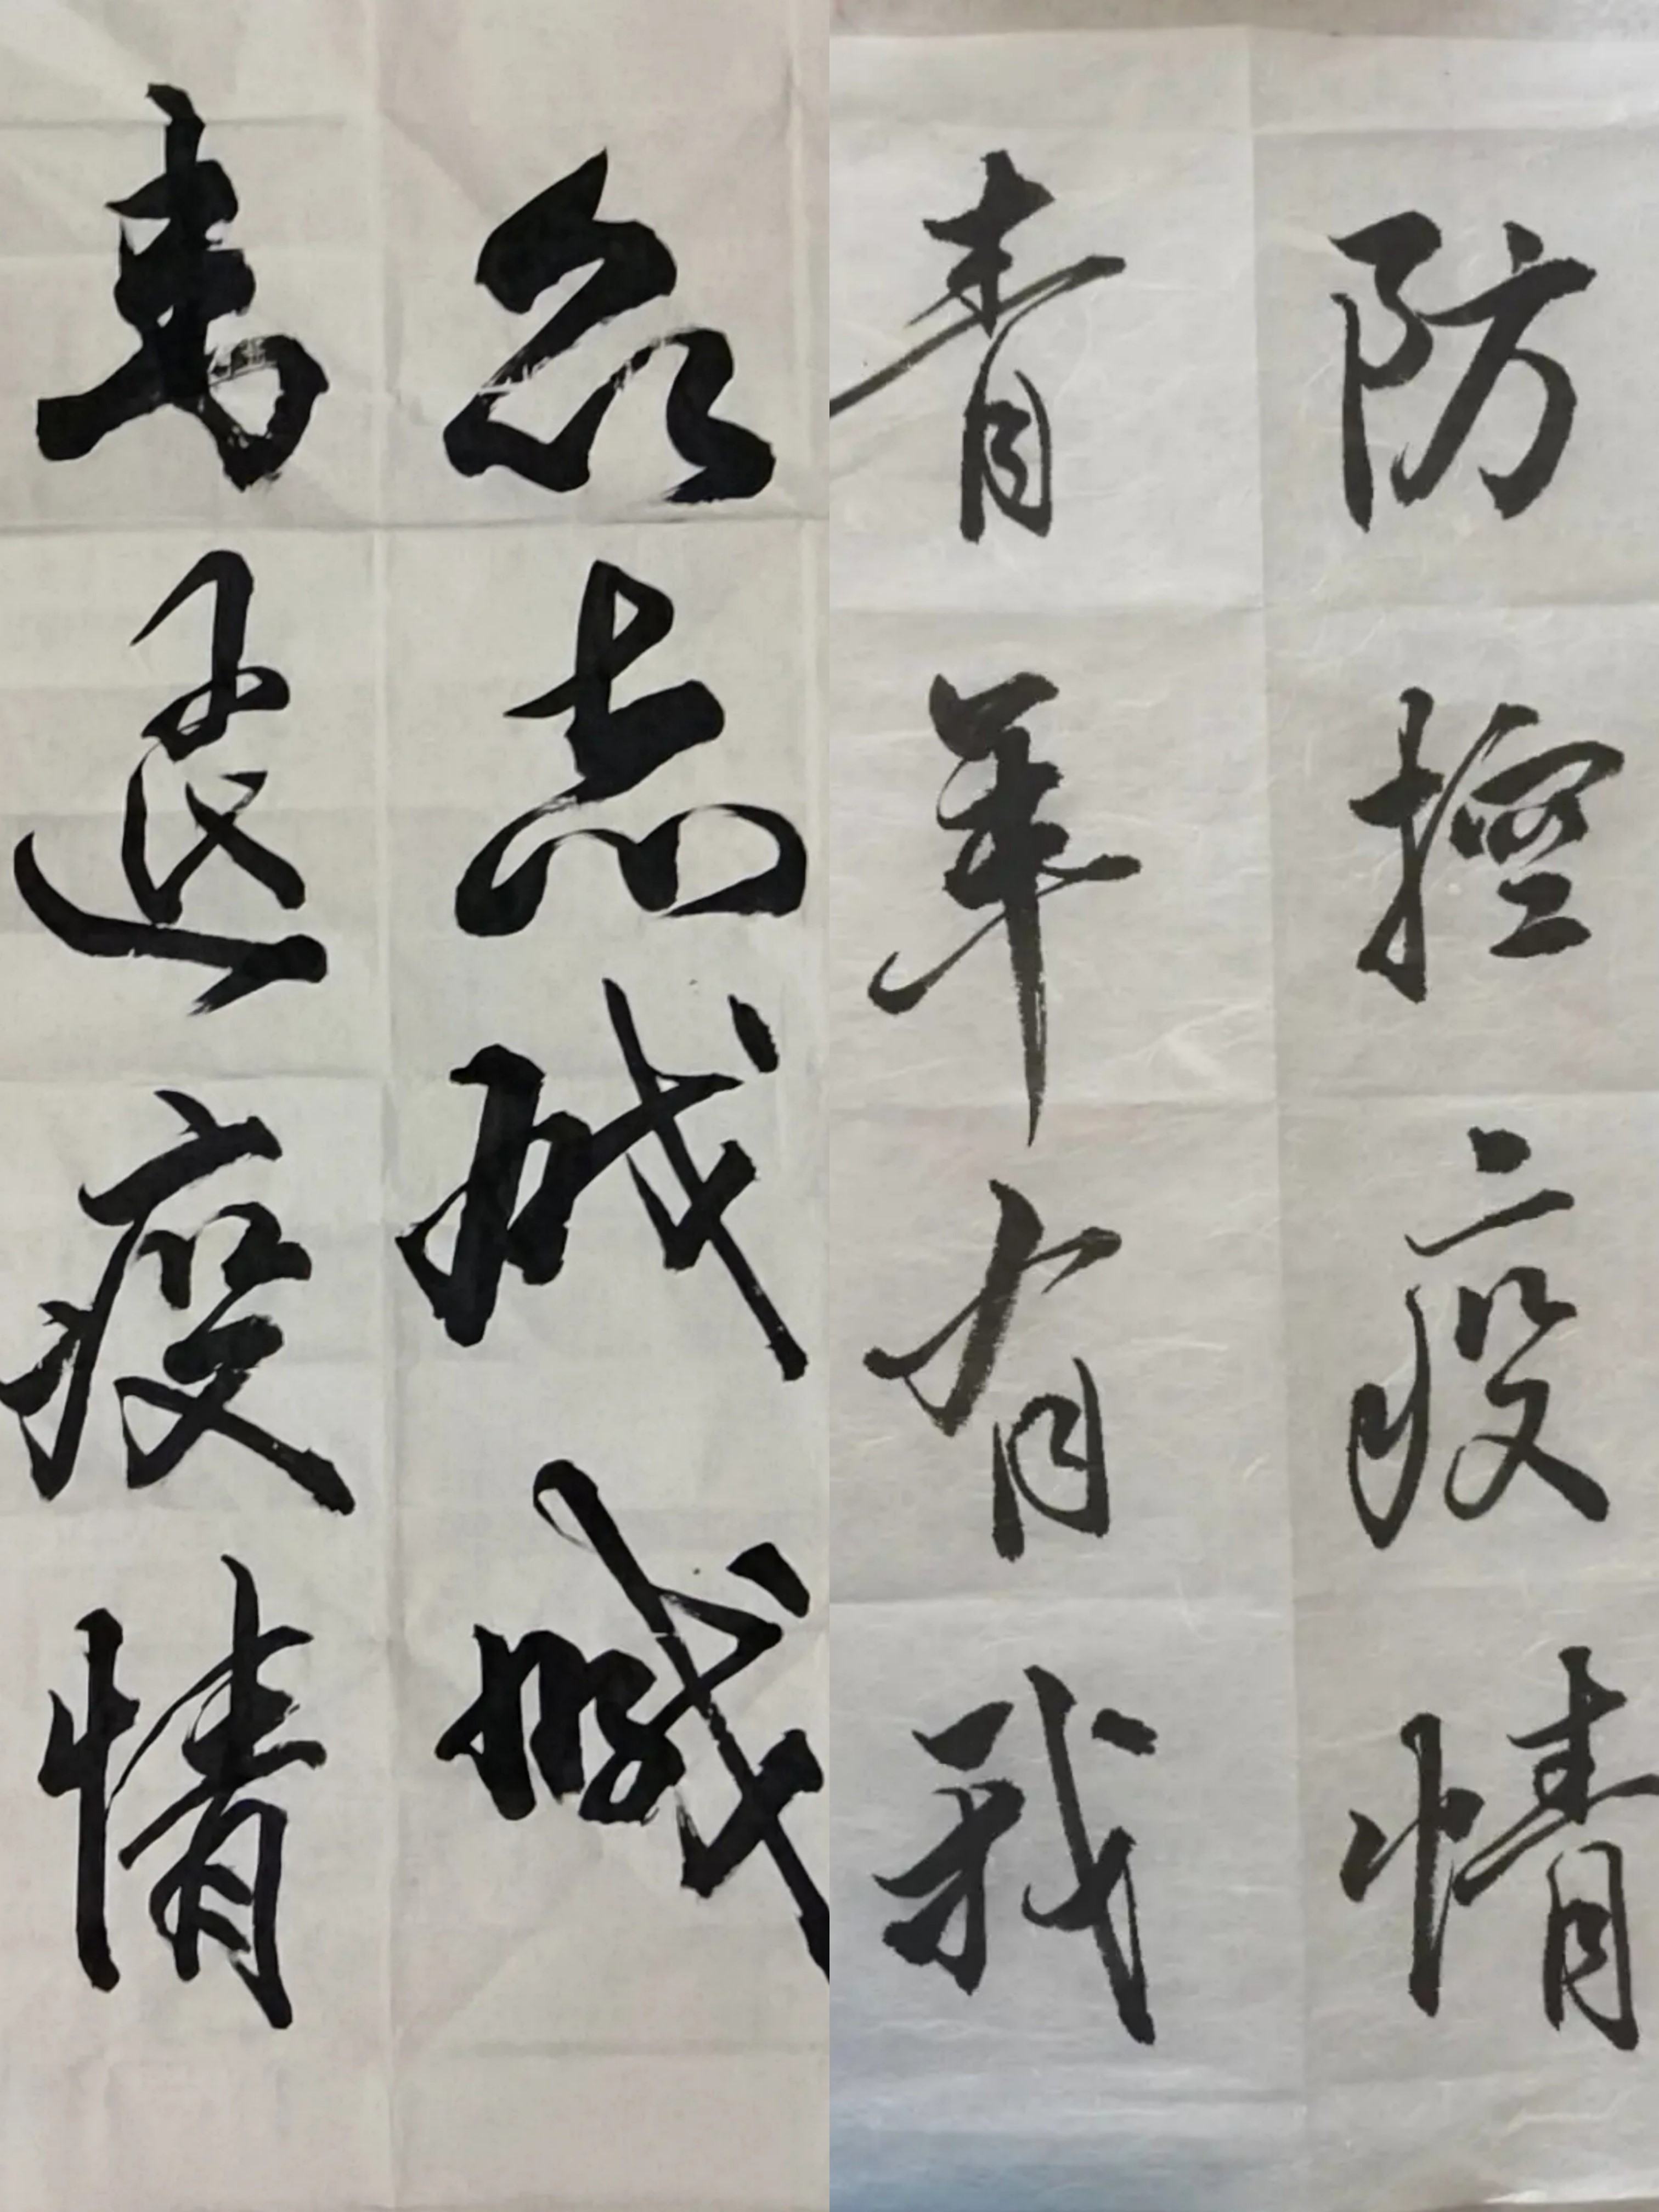 众志成城
击退疫情
防控疫情
青年有我